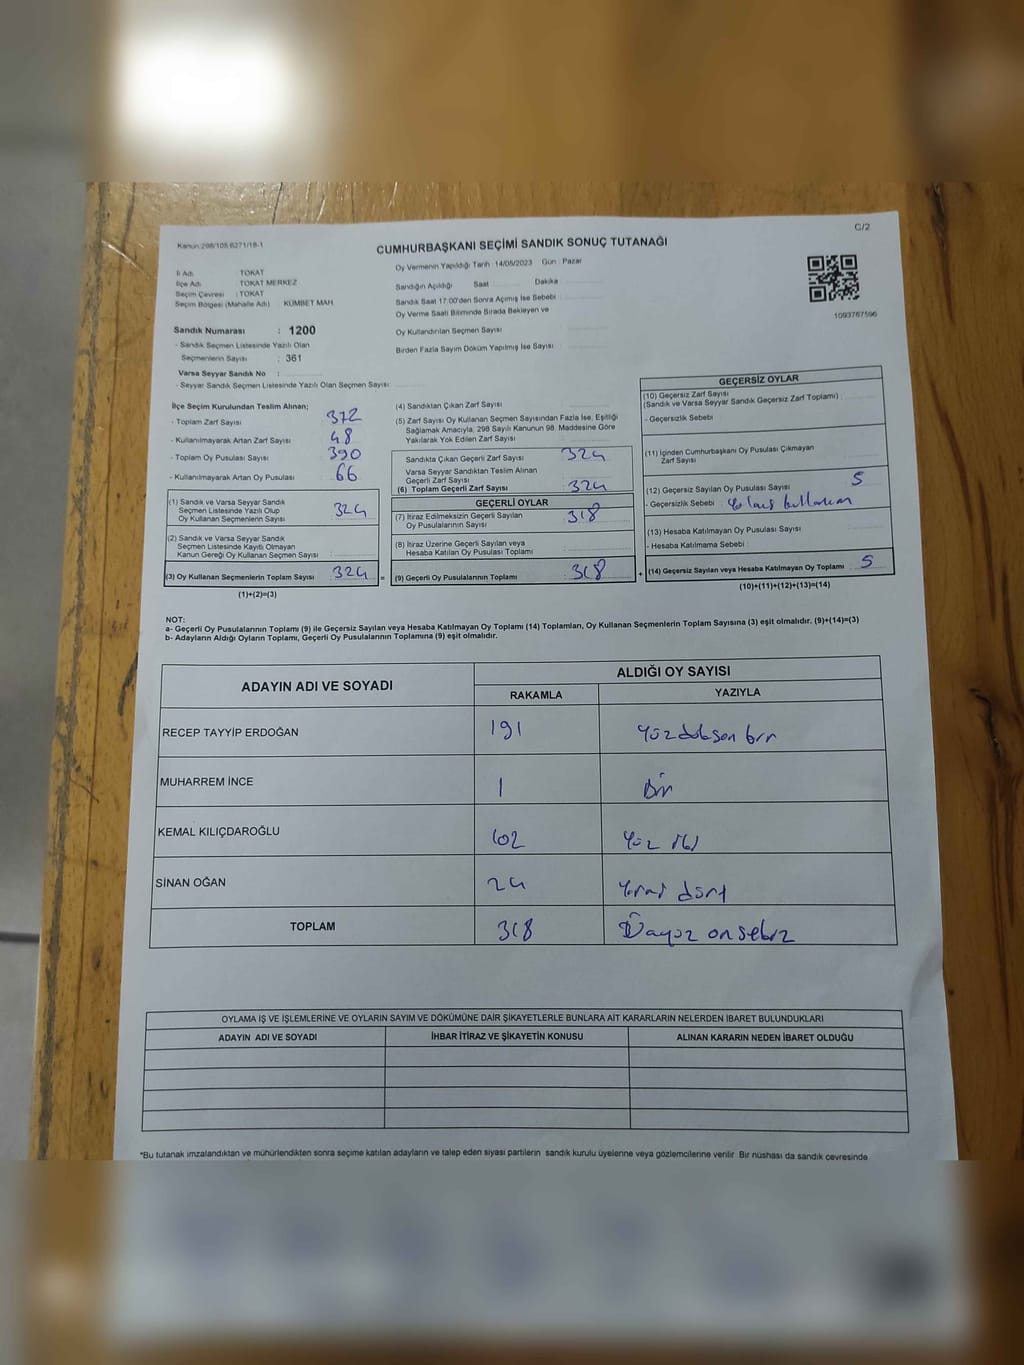 C/2
Kanun:298/105 6271/18-1
CUMHURBAŞKANI SEÇİMİ SANDIK SONUÇ TUTANAĞI
İl Adı TOKAT
İlçe Adı : TOKAT MERKEZ
Seçim Çevresi : TOKAT
Seçim Bölgesi (Mahalle Adı) KÜMBET MAH.
Oy Vermenin Yapıldığı Tarih 14/05/2023 Gün : Pazar
Sandığın Açıldığı Saat Dakika
Sandık Saat 17:00'den Sonra Açılmış İse Sebebi
Oy Verme Saati Bitiminde Sırada Bekleyen ve
Oy Kullandırılan Seçmen Sayısı
Birden Fazla Sayım Döküm Yapılmış İse Sayısı :
1093767596
Sandık Numarası : 1200
- Sandık Seçmen Listesinde Yazılı Olan
Seçmenlerin Sayısı : 361
Varsa Seyyar Sandık No :
- Seyyar Sandık Seçmen Listesinde Yazılı Olan Seçmen Sayısı
İlçe Seçim Kurulundan Teslim Alınan;
- Toplam Zarf Sayısı 372
- Kullanılmayarak Artan Zarf Sayısı 48
- Toplam Oy Pusulası Sayısı 390
- Kullanılmayarak Artan Oy Pusulası 66
(1) Sandık ve Varsa Seyyar Sandık
Seçmen Listesinde Yazılı Olup
Oy Kullanan Seçmenlerin Sayısı 324
(2) Sandık ve Varsa Seyyar Sandık
Seçmen Listesinde Kayıtlı Olmayan
Kanun Gereği Oy Kullanan Seçmen Sayısı :
(3) Oy Kullanan Seçmenlerin Toplam Sayısı 324 =
(1)+(2)=(3)
(4) Sandıktan Çıkan Zarf Sayısı
(5) Zarf Sayısı Oy Kullanan Seçmen Sayısından Fazla İse, Eşitliği
Sağlamak Amacıyla, 298 Sayılı Kanunun 98. Maddesine Göre
Yakılarak Yok Edilen Zarf Sayısı
Sandıkta Çıkan Geçerli Zarf Sayısı 324
Varsa Seyyar Sandıktan Teslim Alınan
Geçerli Zarf Sayısı
(6) Toplam Geçerli Zarf Sayısı 324
GEÇERLİ OYLAR
(7) İtiraz Edilmeksizin Geçerli Sayılan
Oy Pusulalarının Sayısı 318
(8) İtiraz Üzerine Geçerli Sayılan veya
Hesaba Katılan Oy Pusulası Toplamı
(9) Geçerli Oy Pusulalarının Toplamı 318 +
GEÇERSİZ OYLAR
(10) Geçersiz Zarf Sayısı
(Sandık ve Varsa Seyyar Sandık Geçersiz Zarf Toplamı) :
- Geçersizlik Sebebi
(11) İçinden Cumhurbaşkanı Oy Pusulası Çıkmayan
Zarf Sayısı
(12) Geçersiz Sayılan Oy Pusulası Sayısı 5
- Geçersizlik Sebebi :
(13) Hesaba Katılmayan Oy Pusulası Sayısı
- Hesaba Katılmama Sebebi :
(14) Geçersiz Sayılan veya Hesaba Katılmayan Oy Toplamı 5
(10)+(11)+(12)+(13)=(14)
NOT:
a- Geçerli Oy Pusulasının Toplamı (9) ile Geçersiz Sayılan veya Hesaba Katılmayan Oy Toplamı (14) Toplamları, Oy Kullanan Seçmenlerin Toplam Sayısına (3) eşit olmalıdır. (9)+(14)=(3)
b- Adayların Aldığı Oyların Toplamı, Geçerli Oy Pusulalarının Toplamına (9) eşit olmalıdır.
ADAYIN ADI VE SOYADI ALDIĞI OY SAYISI
RAKAMLA YAZIYLA
RECEP TAYYİP ERDOĞAN 191 Yüzdoksan bir
MUHARREM İNCE 1 Bir
KEMAL KILIÇDAROĞLU 102 Yüz iki
SİNAN OĞAN 24 Yirmi dört
TOPLAM 318 Üçyüz onsekiz
OYLAMA İŞ VE İŞLEMLERİNE VE OYLARIN SAYIM VE DÖKÜMÜNE DAİR ŞİKAYETLERLE BUNLARA AİT KARARLARIN NELERDEN İBARET BULUNDUKLARI
ADAYIN ADI VE SOYADI İHBAR İTİRAZ VE ŞİKAYETİN KONUSU ALINAN KARARIN NEDEN İBARET OLDUĞU
*Bu tutanak imzalandıktan ve mühürlendikten sonra seçime katılan adayların ve talep eden siyasi partilerin sandık kurulu üyelerine veya gözlemcilerine verilir. Bir nüshası da sandık çevresinde